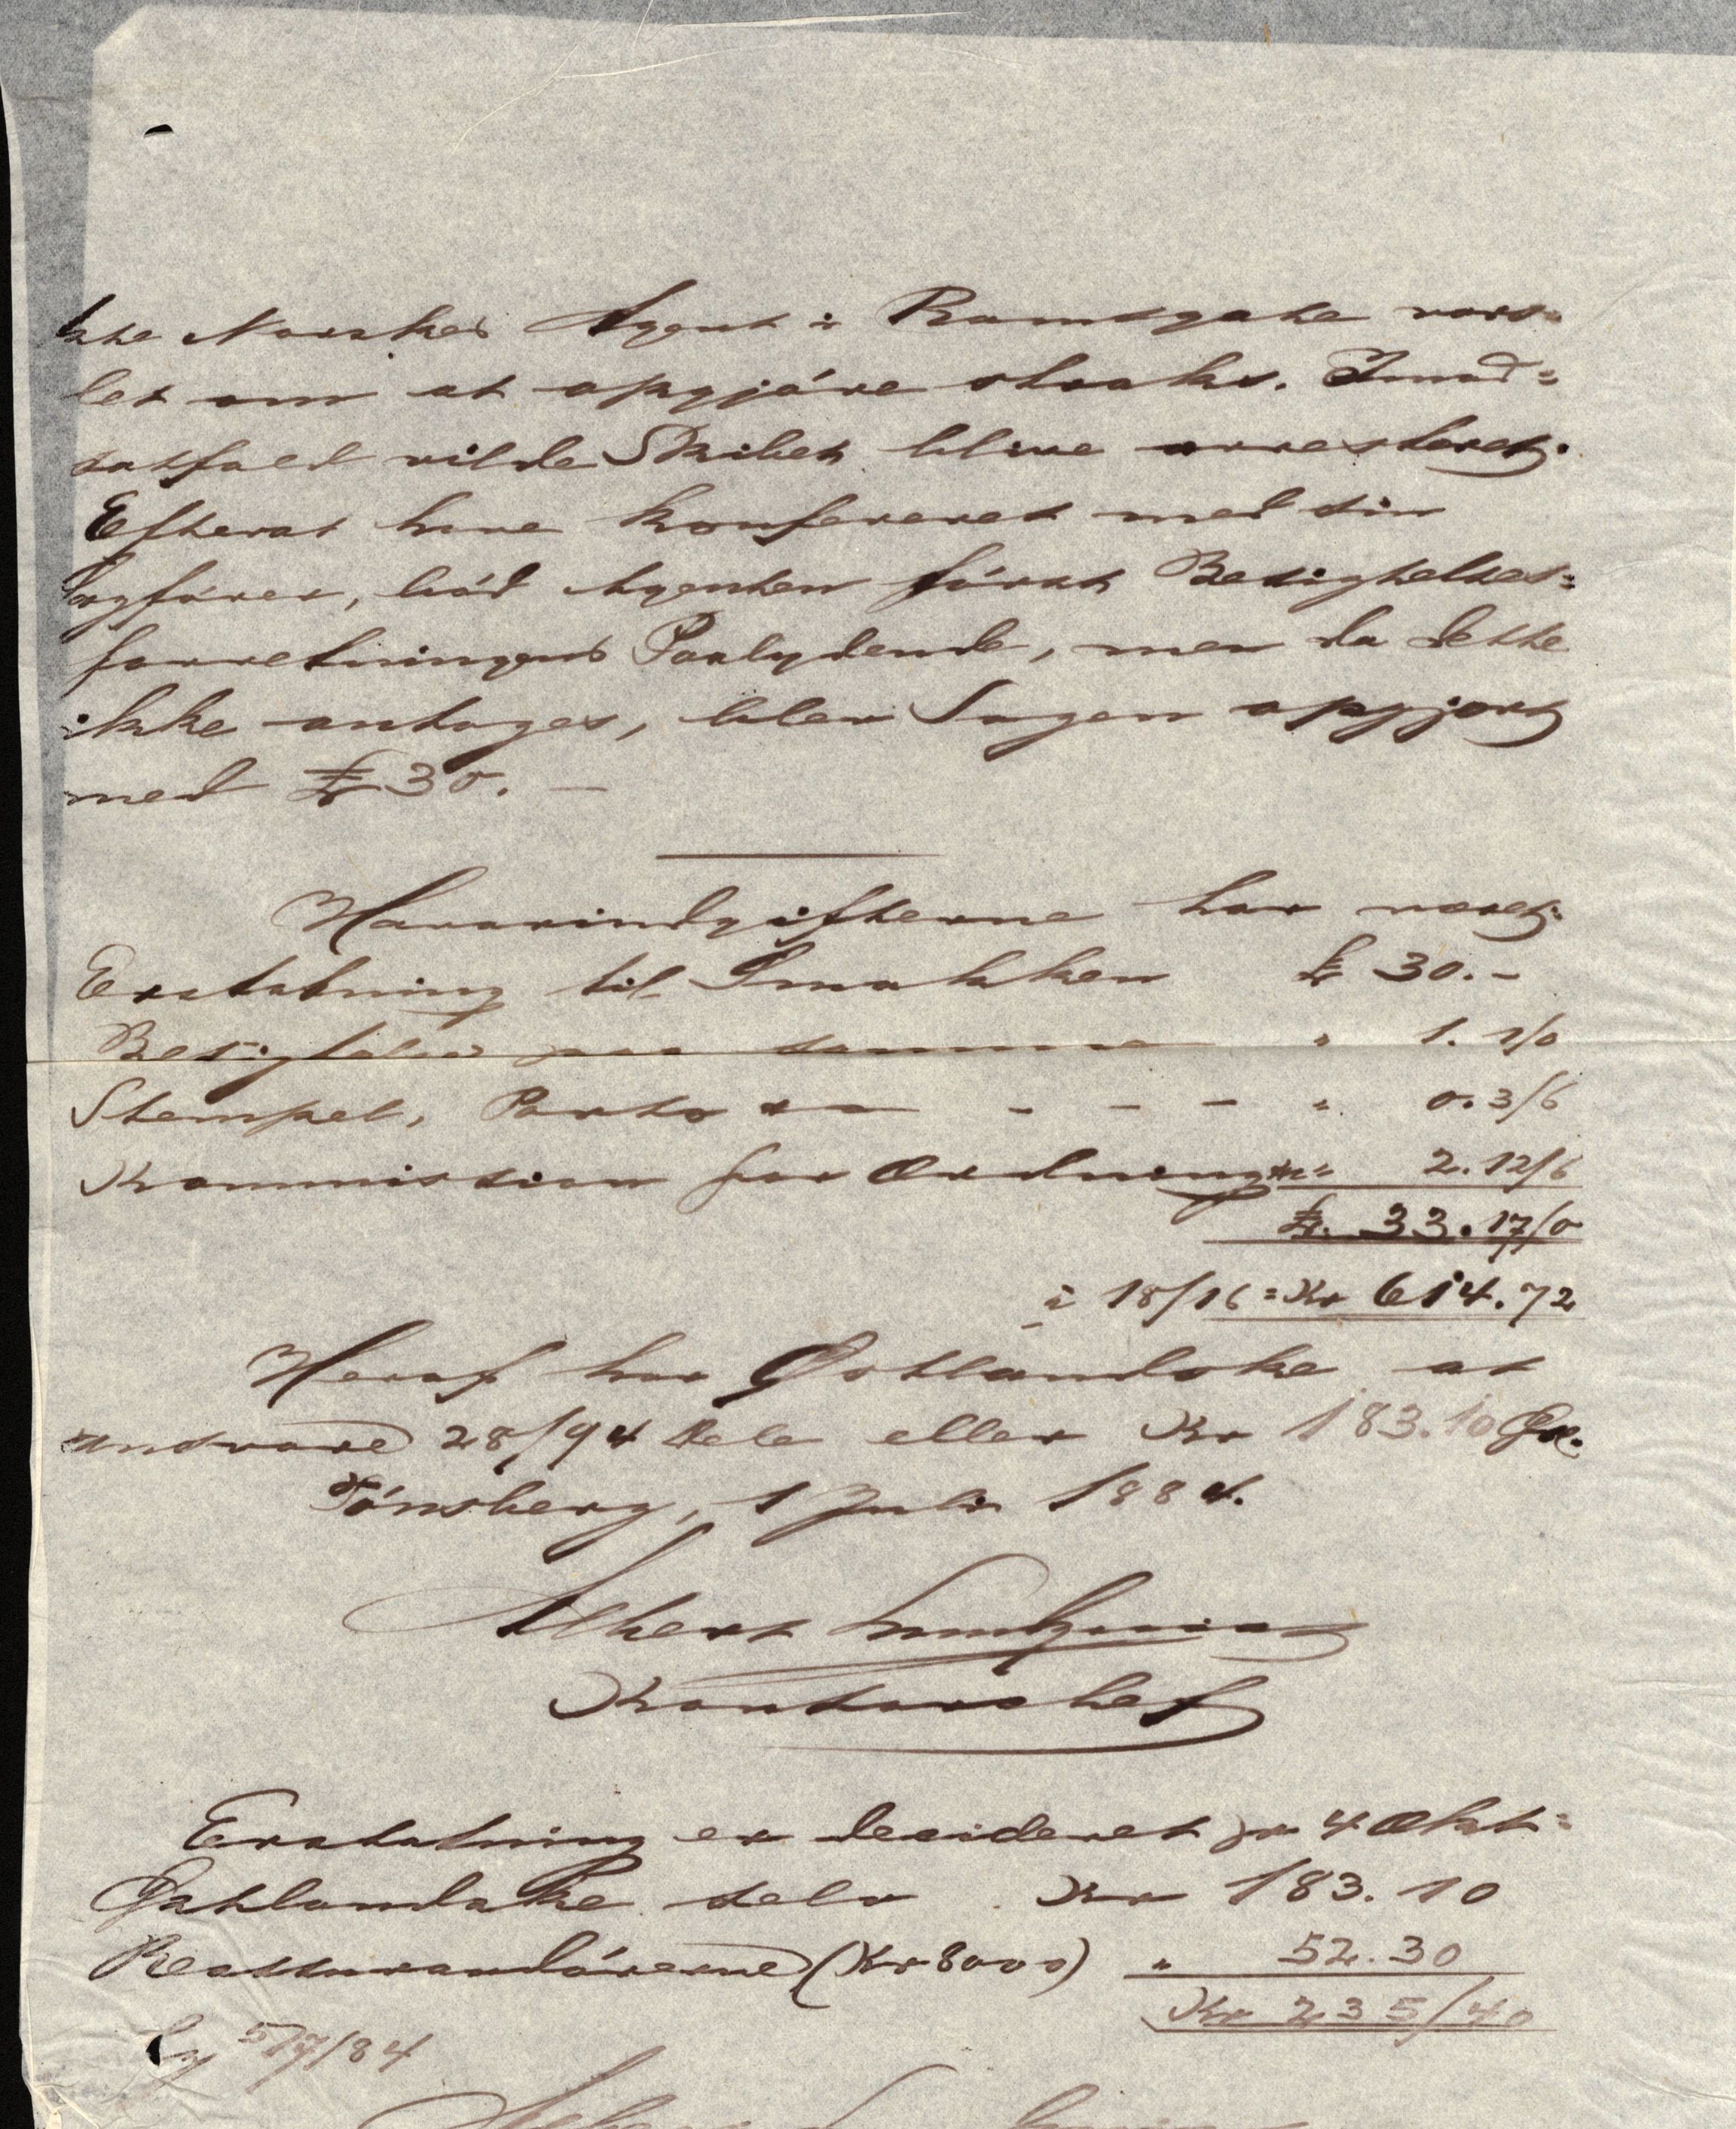 kke Norskes Agent i Ramsgate vars-
let om at opgjøre straks. Imod=
satfald vilde Skibet blive arresteret.
Efterat have konfereret med sin
Sagfører, bød Agenten først Besigtelses=
forretningens Paalydende, men da dette
ikke antoges, blev Sagen opgjort
med £ 30. —
Havariudgifterne har været:
Erstatning til Smakken £ 30.-
Besigtelse paa samme " 1. 1/0
Stempel, Porto - - - " 0. 3/6
Kommission for Ordning " 2. 12/6
£. 33. 17/0
à 18/16 = Kr 614.72
Heraf har Gotlandske at
andsvare 28/94 Dele eller Kr 183.10 Øre.
Tønsberg, 1 Juli 1884.
Albert
Kontorchef
Erstatning er decideret pr 4 Okt=
Gotlandske selv Kr 183. 10
Reassurandørerne (Kr 8000) " 52.30
Kr 235/40
5/7/84